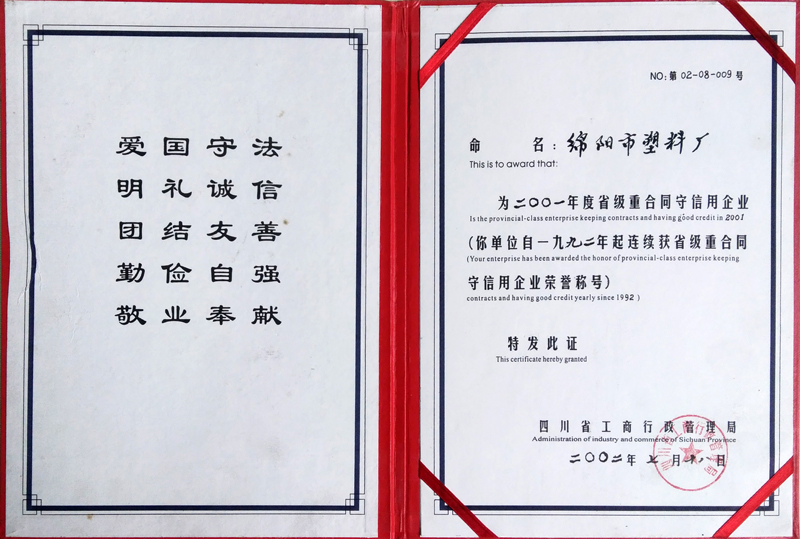 爱国守法
明礼诚信
团结友善
勤俭自强
敬业奉献
NO:第 02-08-009 号
命 名:绵阳市塑料厂
This is to award that:
为二〇〇一年度省级重合同守信用企业
Is the provincial-class enterprise keeping contracts and having good credit in 2001
(你单位自一九九二年起连续获省级重合同
(Your enterprise has been awarded the honor of provincial-class enterprise keeping
守信用企业荣誉称号)
contracts and having good credit yearly since 1992 )
特发此证
This certificate hereby granted
四川省工商行政管理局
Administration of industry and commerce of Sichuan Province
二〇〇二年七月 日